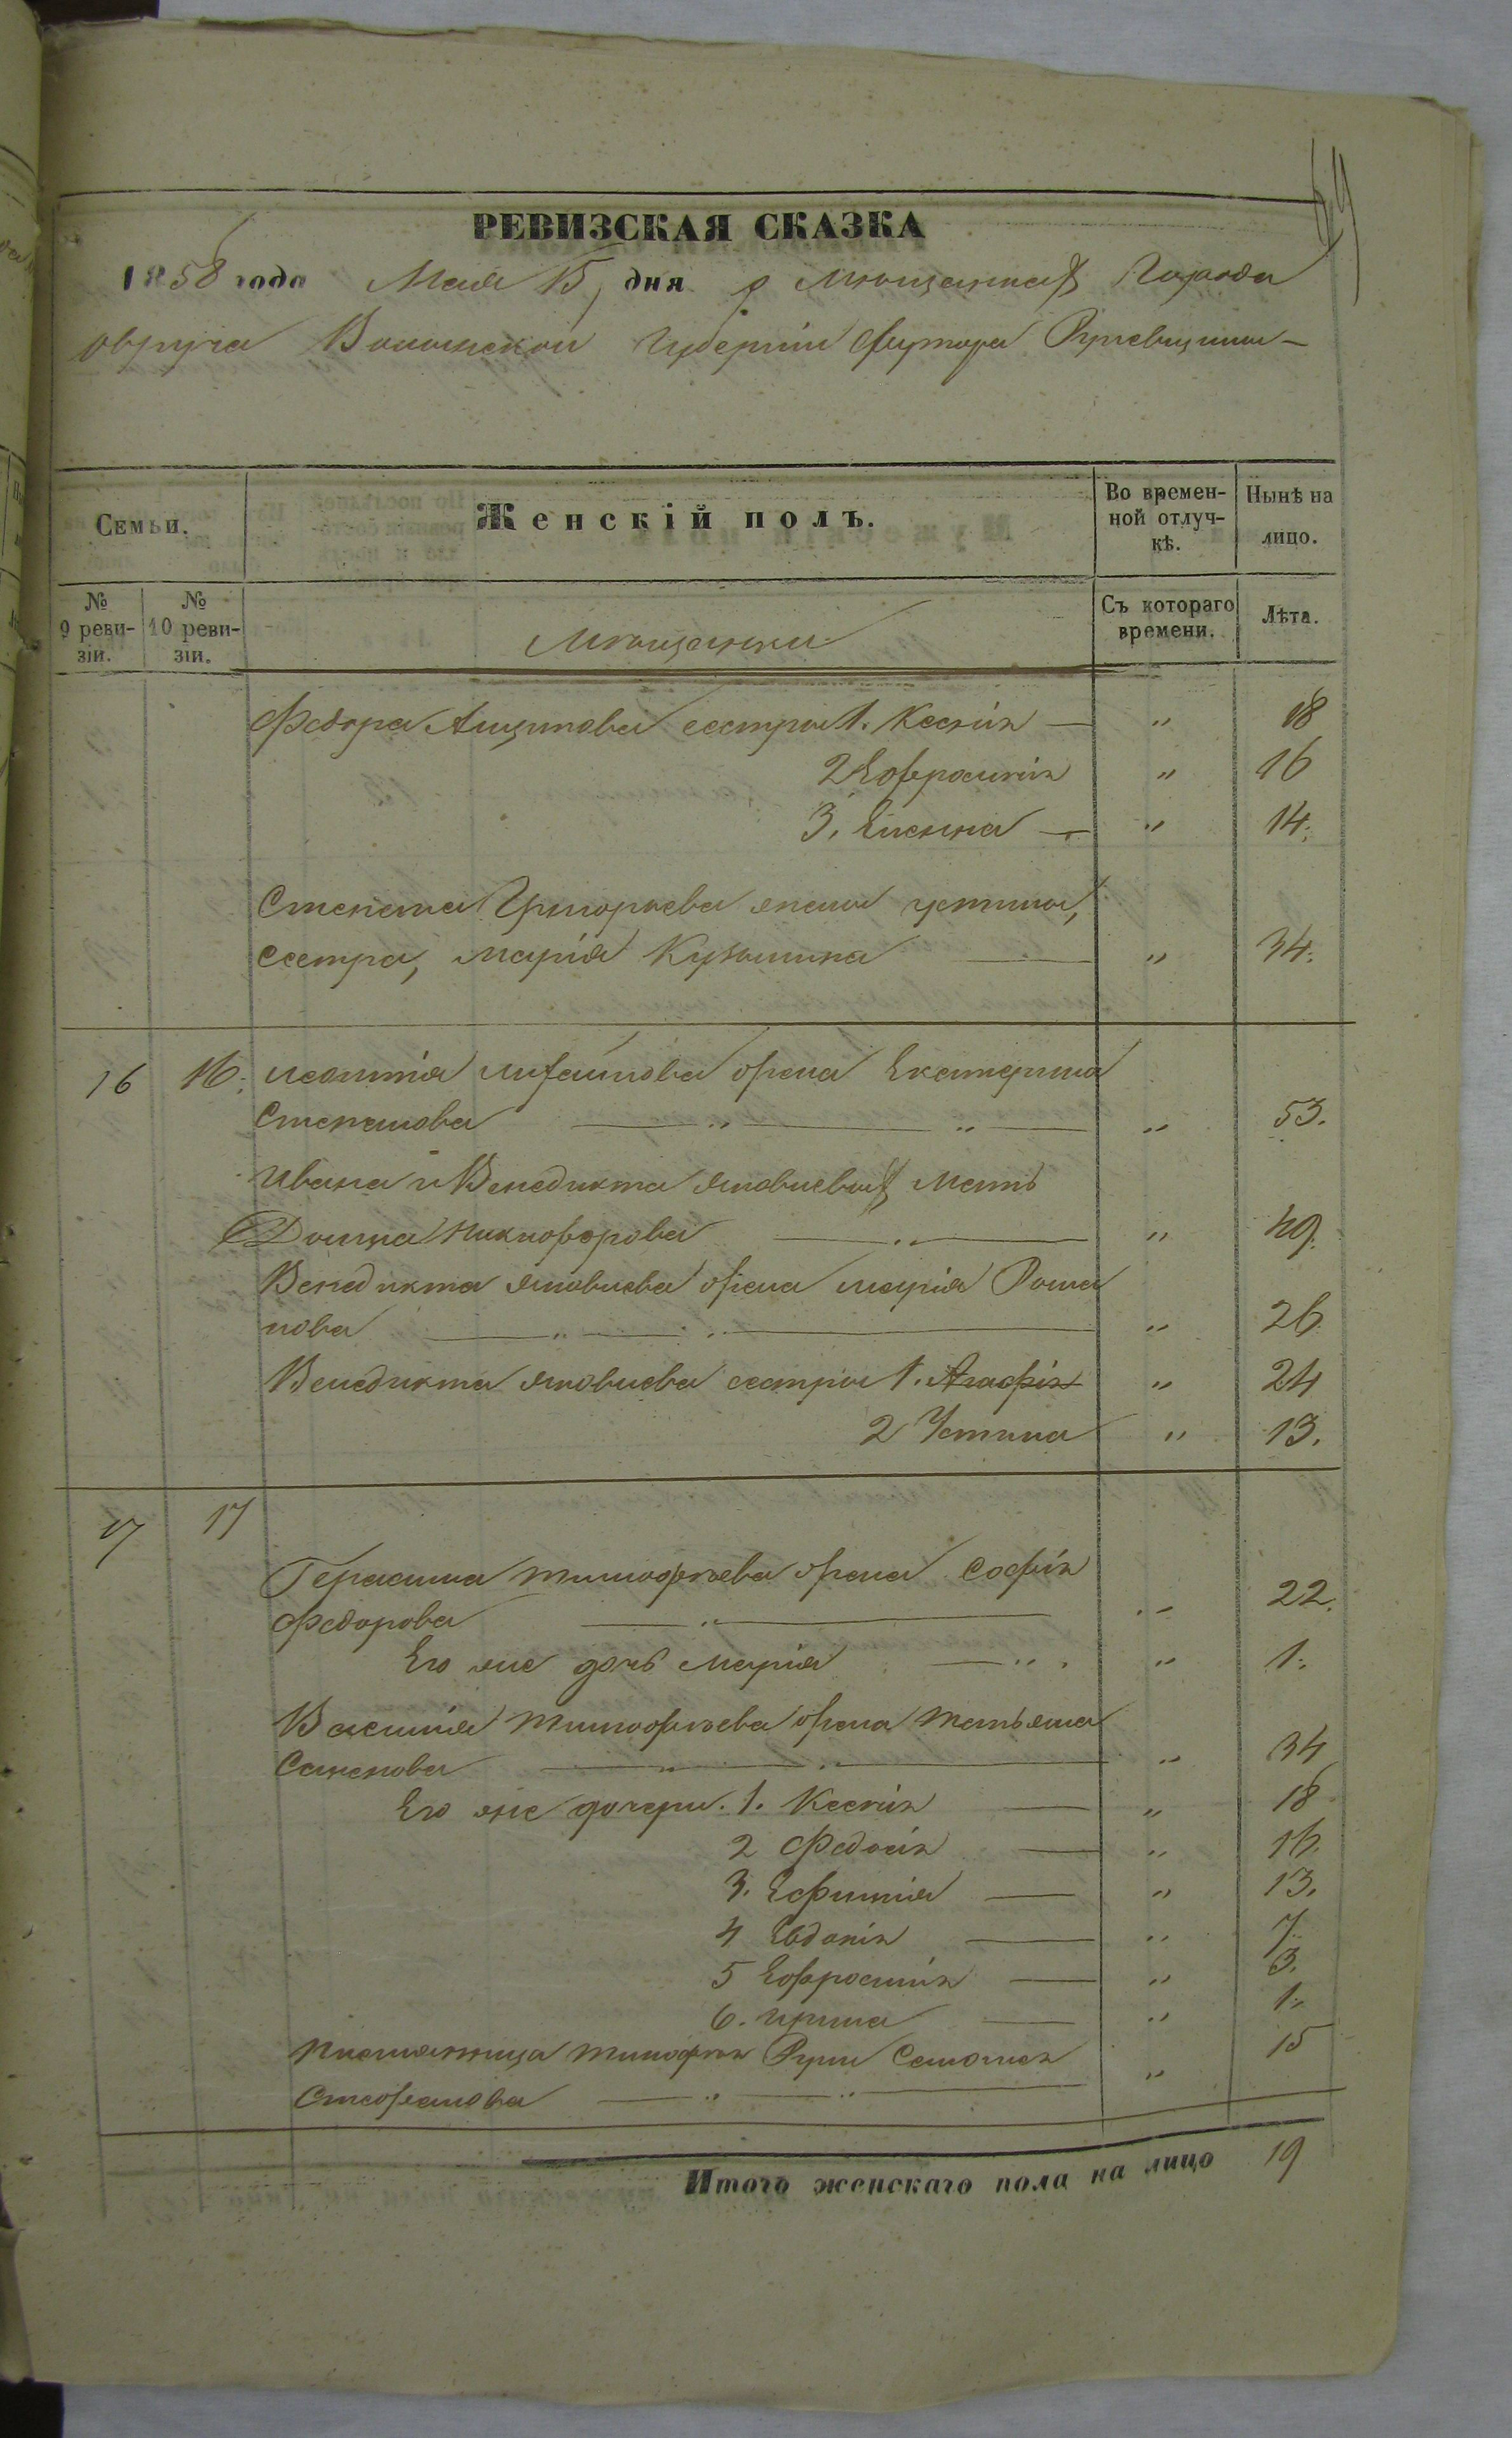 69
РЕВИЗСКАЯ СКАЗКА
1858 года Мая 15 дня о мѣщанахъ Города
овруча Волынской Губерніи футора
Семьи. Женскій полъ. Во времен- Нынѣ на
ной отлуч- лицо.
кѣ.
№ № Съ котораго Лѣта.
9 реви- 10 реви- времени.
зіи. зіи.
мѣщанки
Федора сестры 1. Ксенія — „ 18
2 Ефросинія „ 16
3. Елена — „ 14.
Степана Григорьева жены устины,
сестра, марія Кузьмина — „ 34.
16 16. леонтія жена Екатерина
Степанова — „ — „ — „ 53.
Ивана и Венедикта яковлевыхъ мать
Домна Никифорова — „ — „ 49.
Венедикта яковлева жена марія Рома
нова — „ — „ — „ 26
Венедикта яковлева сестры 1. Агафія „ 24
2 Устина „ 13.
17 17
Герасима тимофѣева жена софія
Федорова — „ — „ 22.
Его же дочь марія — „ „ 1.
Василія тимофѣева жена татьяна
Семенова — „ — „ — „ 34
Его же дочери. 1. Ксенія — „ 18
2 Федосія — „ 16.
3. Ефимія — „ 13.
4 Евдокія — „ 7.
5 Ефросинія — „ 3.
6. ирина — „ 1.
племянница
Стефанова — „ — „ — „ 15
Итого женскаго пола на лицо 19